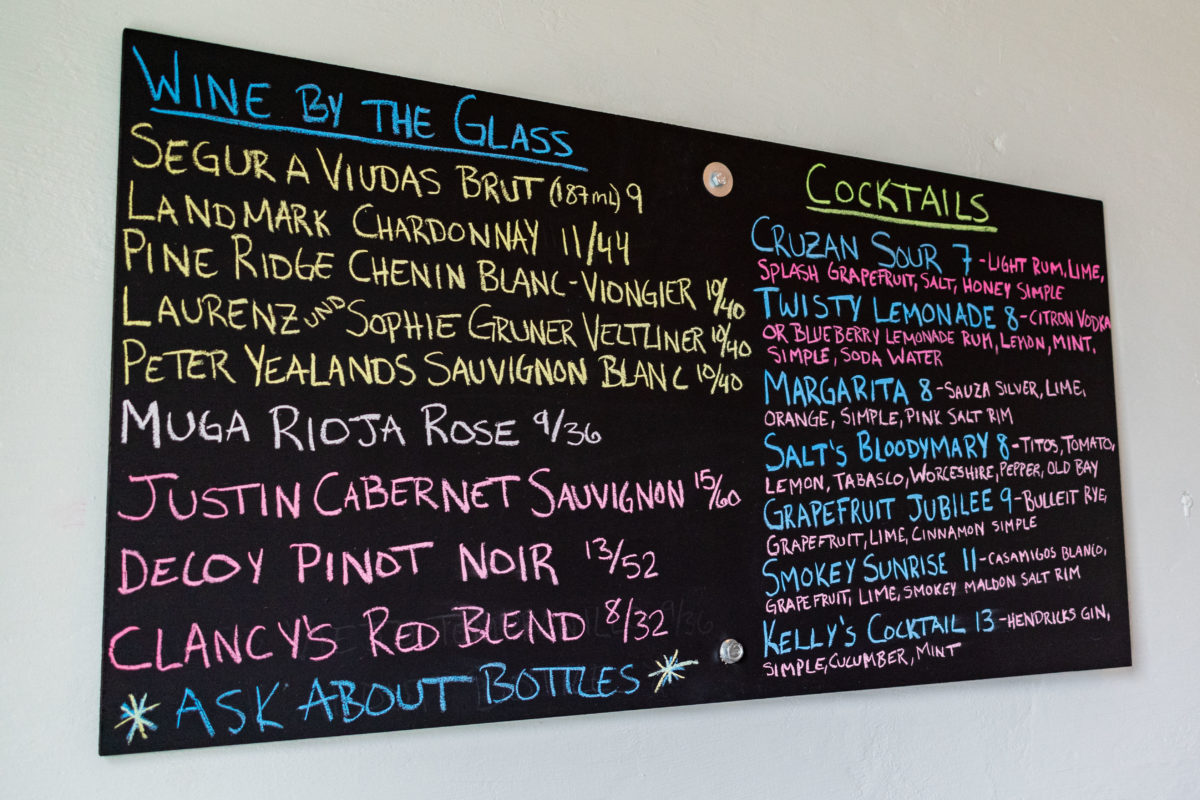 WINE BY THE GLASS
SEGURA VIUDAS BRUT (187ML) 9
LANDMARK CHARDONNAY 11/44
PINE RIDGE CHENIN BLANC-VIONGIER 10/40
LAURENZ UND SOPHIE GRUNER VELTLINER 10/40
PETER YEALANDS SAUVIGNON BLANC 10/40
MUGA RIOJA ROSE 9/36
JUSTIN CABERNET SAUVIGNON 15/60
DECOY PINOT NOIR 13/52
CLANCY'S RED BLEND 8/32
* ASK ABOUT BOTTLES *
COCKTAILS
CRUZAN SOUR 7 - LIGHT RUM, LIME,
SPLASH GRAPEFRUIT, SALT, HONEY SIMPLE
TWISTY LEMONADE 8 - CITRON VODKA
OR BLUEBERRY LEMONADE RUM, LEMON, MINT,
SIMPLE, SODA WATER
MARGARITA 8 - SAUZA SILVER, LIME,
ORANGE, SIMPLE, PINK SALT RIM
SALT'S BLOODYMARY 8 - TITOS, TOMATO,
LEMON, TABASCO, WORCESHIRE, PEPPER, OLD BAY
GRAPEFRUIT JUBILEE 9 - BULLEIT RYE,
GRAPEFRUIT, LIME, CINNAMON SIMPLE
SMOKEY SUNRISE 11 - CASAMIGOS BLANCO,
GRAPEFRUIT, LIME, SMOKEY MALDON SALT RIM
KELLY'S COCKTAIL 13 - HENDRICKS GIN,
SIMPLE, CUCUMBER, MINT